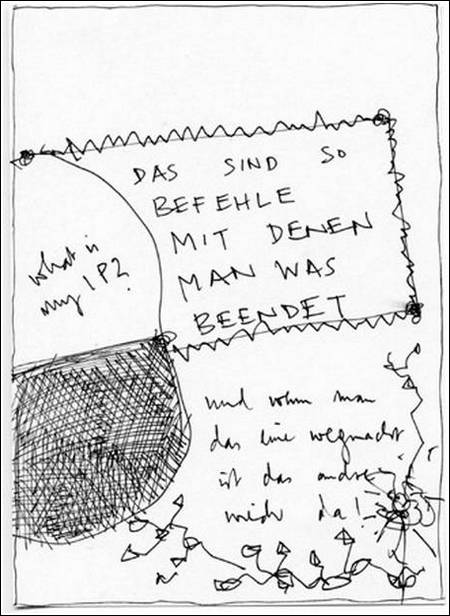 DAS SIND SO
BEFEHLE
MIT DENEN
MAN WAS
BEENDET
what is
my IP?
und wenn man
das eine wegmacht
ist das andre
nicht da!